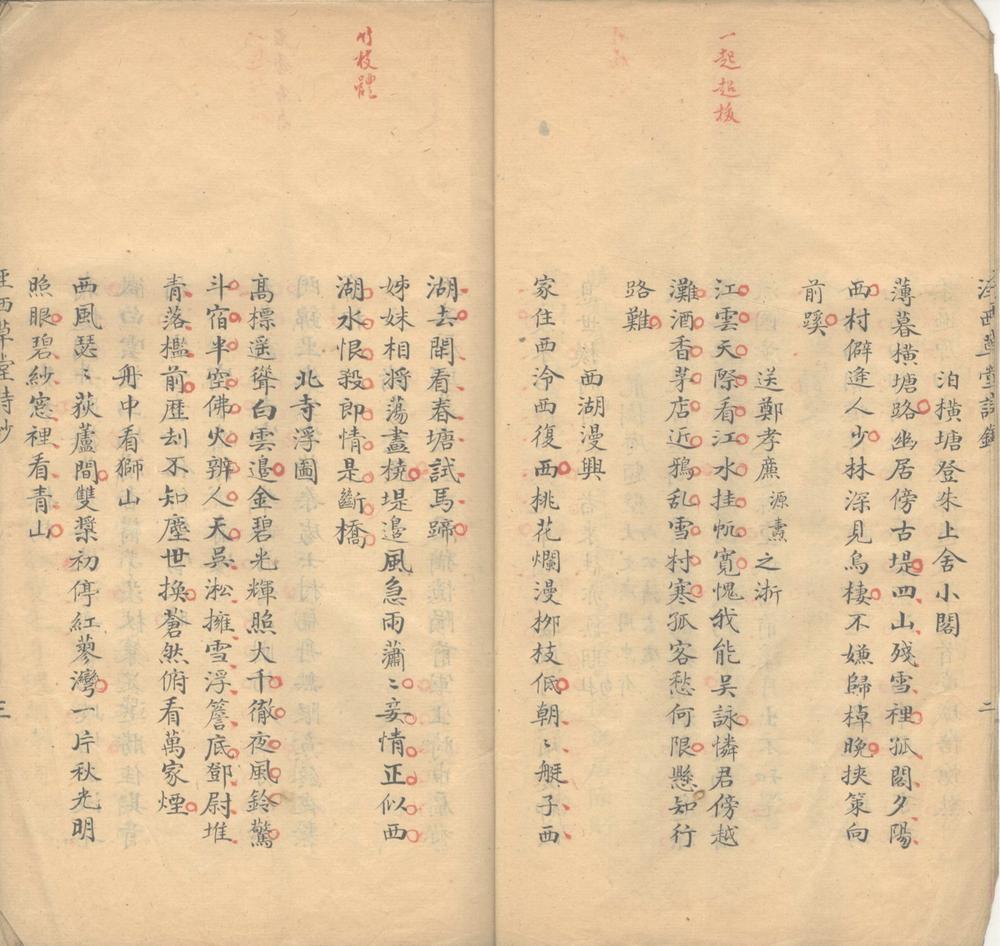 一起超拔
泊橫塘登朱上舍小閣
薄暮橫塘路幽居傍古堤四山殘雪裡孤閣夕陽
西村僻逢人少林深見烏棲不嫌歸棹晚挾策向
前蹊
送鄭孝廉源燾之浙
江雲天際看江水挂帆寬愧我能吳詠憐君傍越
灘酒香茅店近鴉乱雪村寒孤客愁何限懸知行
路難
西湖漫興
家住西泠西復西桃花爛漫柳枝低朝朝艇子西
二
竹枝體
湖去閒看春塘試馬蹄
姊妹相將蕩畫橈堤邉風急雨瀟〻妾情正似西
湖水恨殺郎情是斷橋
北寺浮圖
髙標遥聳白雲邉金碧光輝照大千徹夜風鈴驚
斗宿半空佛火辨人天吳淞擁雪浮簷底鄧尉堆
青落檻前歷刦不知塵世換蒼然俯看萬家煙
舟中看獅山
西風瑟〻荻蘆間雙槳初停紅蓼灣一片秋光明
照眼碧紗窓裡看青山
三